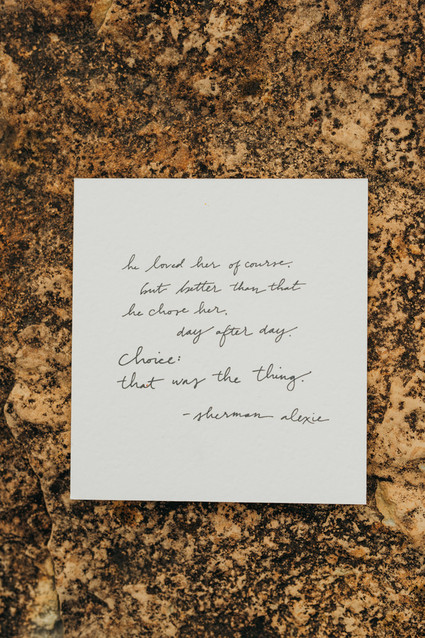 he loved her of course.
but better than that
he chose her.
day after day.
Choice:
that was the thing.
- sherman alexie